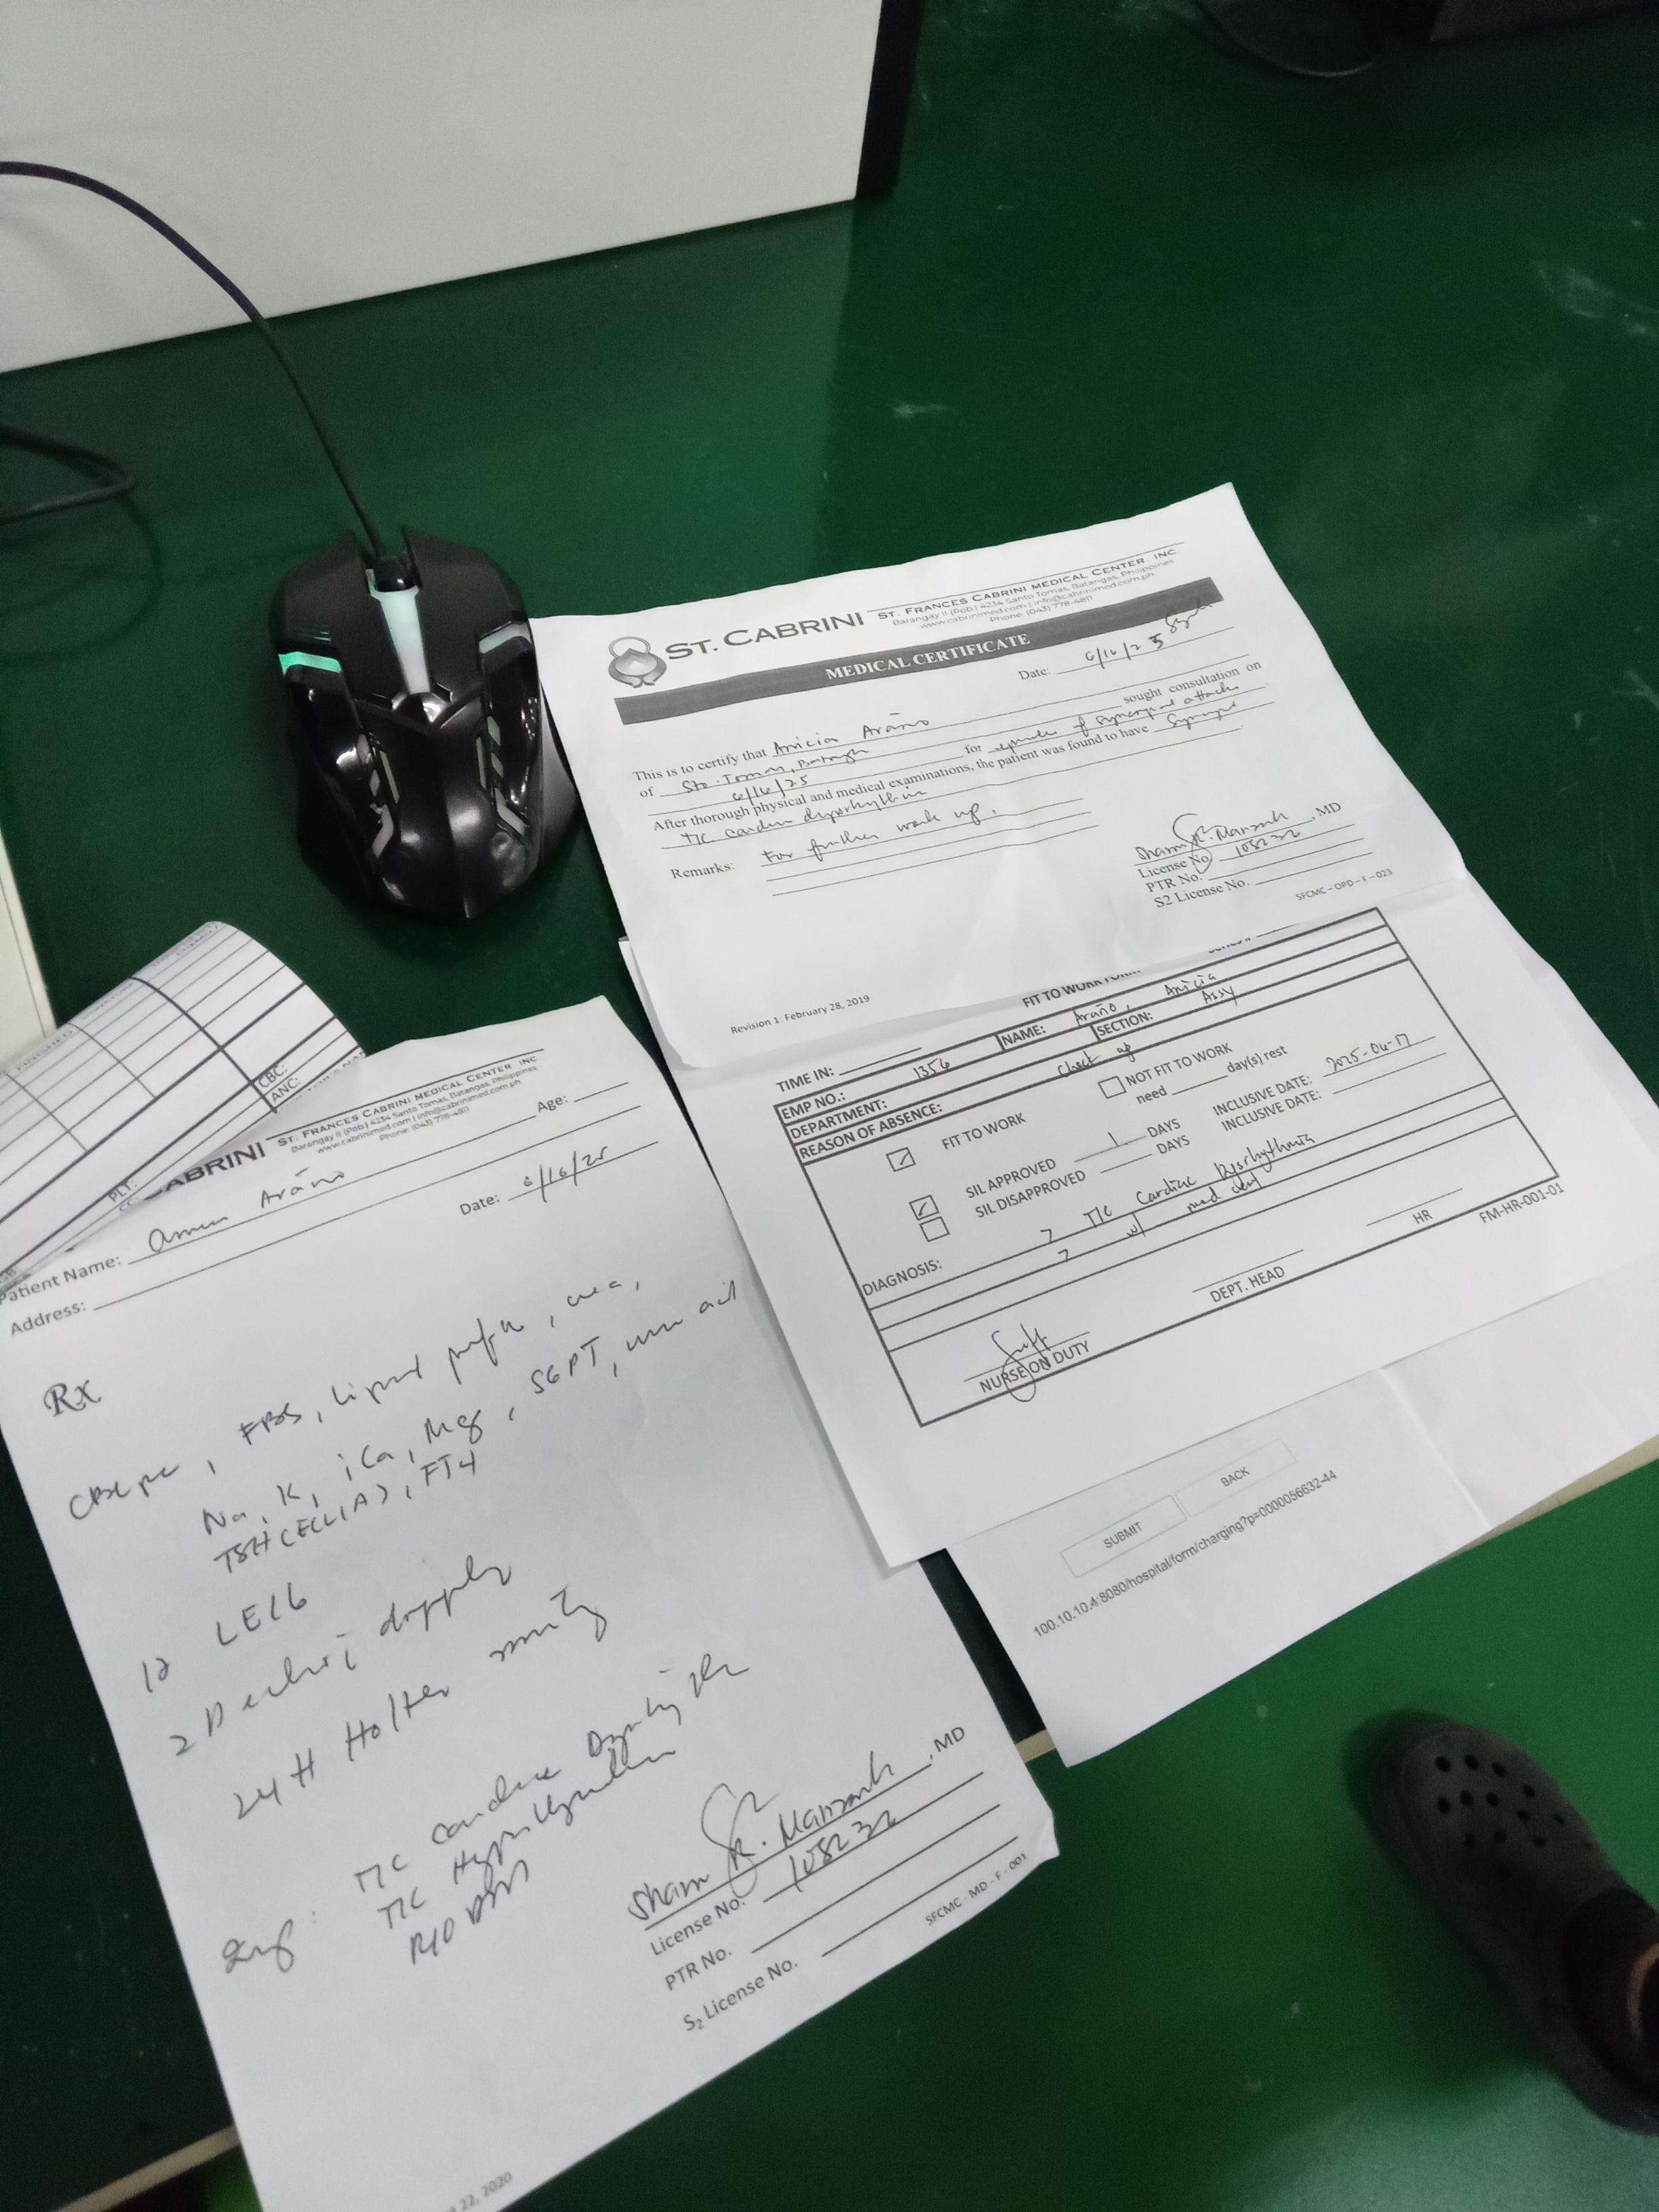 ST. CABRINI
ST. FRANCES CABRINI MEDICAL CENTER, INC.
Barangay II (Pob.) 4234 Santo Tomas, Batangas, Philippines
www.cabrinimed.com | info@cabrinimed.com.ph
Phone: (043) 778-4811
MEDICAL CERTIFICATE
Date: 6/16/25
This is to certify that Anicia Araño
of Sto. Tomas, Batangas sought consultation on
6/16/25 for episodes of syncopal attacks
After thorough physical and medical examinations, the patient was found to have Syncope
T/C cardiac dysrhythmia
Remarks: For further work up.
, MD
License No. 108232
PTR No.
S2 License No.
SFCMC - OPD - F - 023
Revision 1: February 28, 2019
FIT TO WORK FORM
TIME IN:
EMP NO.: 1356 NAME: Araño, Anicia
DEPARTMENT: SECTION: Assy
REASON OF ABSENCE: Check up
FIT TO WORK NOT FIT TO WORK
need day(s) rest
SIL APPROVED 1 DAYS INCLUSIVE DATE: 2025-06-17
SIL DISAPPROVED DAYS INCLUSIVE DATE:
DIAGNOSIS: T/C Cardiac Dysrhythmia
w/ med cert
NURSE ON DUTY
DEPT. HEAD
HR
FM-HR-001-01
SUBMIT BACK
100.10.10.4:8080/hospital/form/charging?p=0000056632-44
CBC:
ANC:
PLT:
CABRINI
ST. FRANCES CABRINI MEDICAL CENTER, INC.
Barangay II (Pob.) 4234 Santo Tomas, Batangas, Philippines
www.cabrinimed.com | info@cabrinimed.com.ph
Phone: (043) 778-4811
Patient Name: Araño Age:
Address: Date: 6/16/25
Rx
CBC pc, FBS, lipid profile, crea,
Na, K, iCa, Mg, SGPT, uric acid
TSH (ECLIA), FT4
12 LECG
2D echo doppler
24H Holter
T/C Cardiac Dysrhythmia
T/C
R/O
, MD
License No. 108232
PTR No.
S2 License No.
SFCMC - MD - F - 001
22, 2020